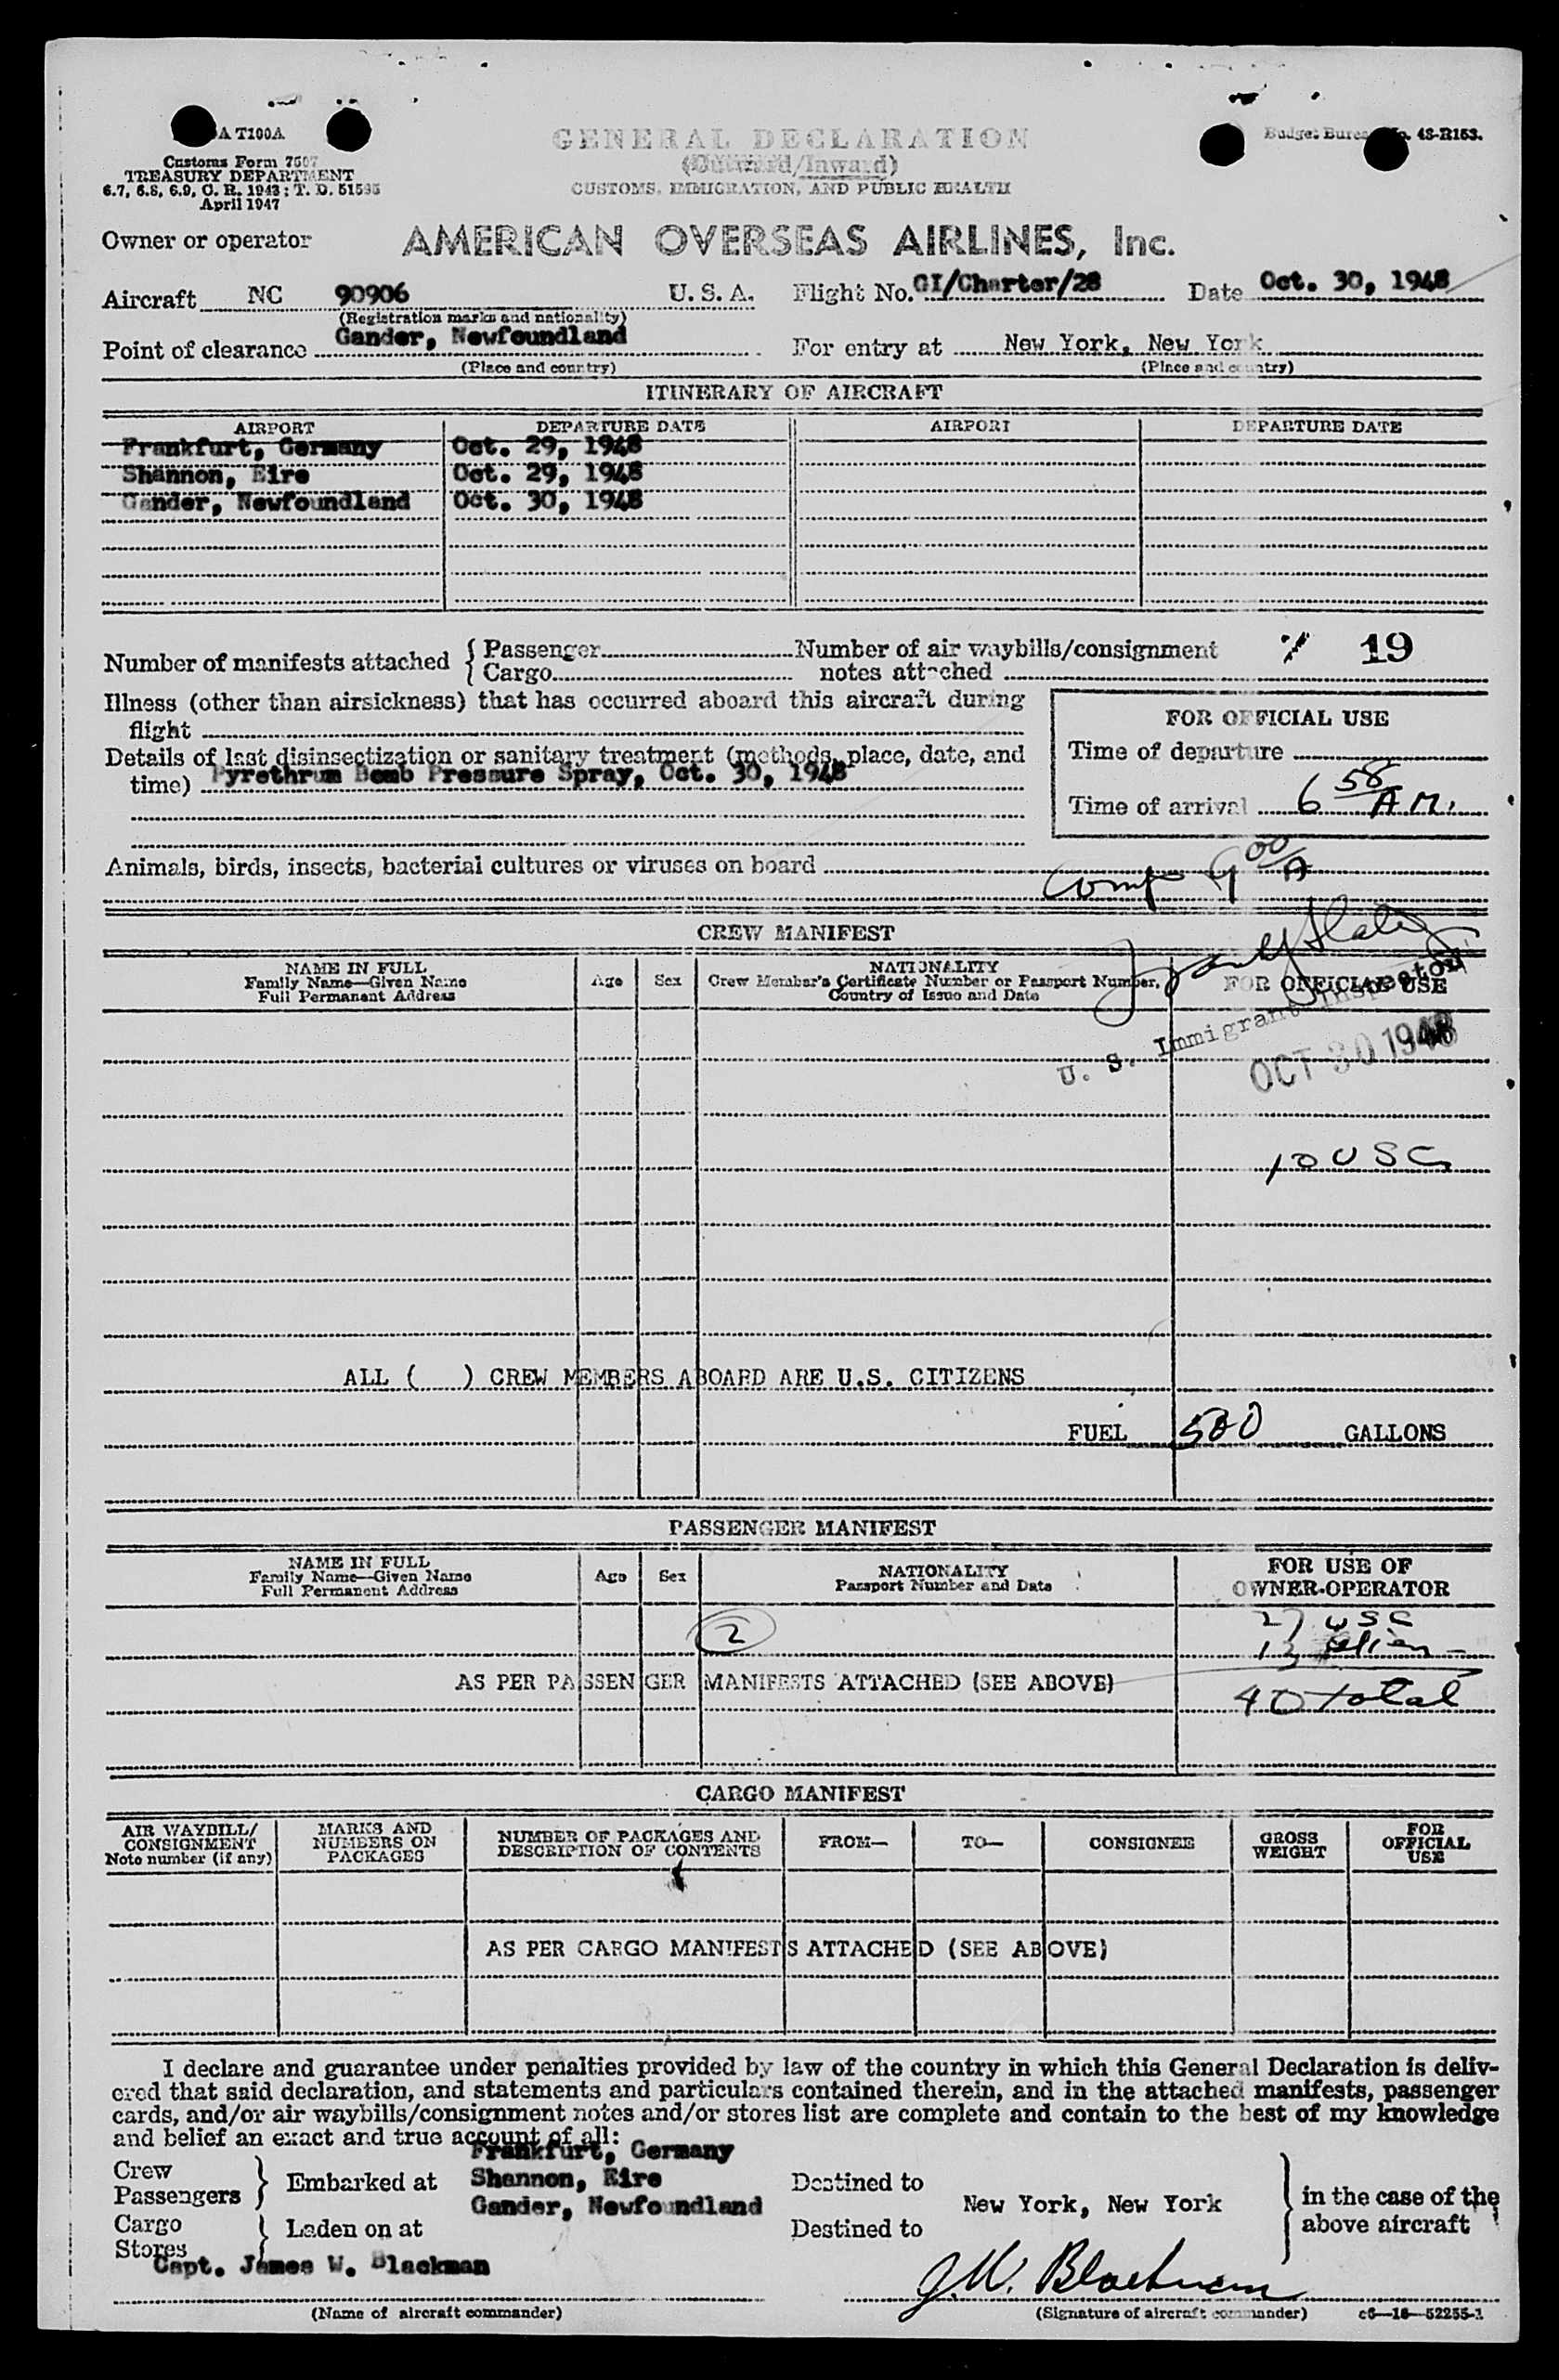 A T100A
Customs Form 7507
TREASURY DEPARTMENT
6.7, 6.8, 6.9, C. R. 1943; T. D. 51595
April 1947
GENERAL DECLARATION
(Outward/Inward)
CUSTOMS, IMMIGRATION, AND PUBLIC HEALTH
Budget Bureau No. 48-R153.
Owner or operator AMERICAN OVERSEAS AIRLINES, Inc.
Aircraft NC 90906 U. S. A. Flight No. GI/Charter/28 Date Oct. 30, 1948
(Registration marks and nationality)
Point of clearance Gander, Newfoundland For entry at New York, New York
(Place and country) (Place and country)
ITINERARY OF AIRCRAFT
AIRPORT DEPARTURE DATE AIRPORT DEPARTURE DATE
Frankfurt, Germany Oct. 29, 1948
Shannon, Eire Oct. 29, 1948
Gander, Newfoundland Oct. 30, 1948
Number of manifests attached { Passenger Number of air waybills/consignment 19
Cargo notes attached
Illness (other than airsickness) that has occurred aboard this aircraft during
flight
FOR OFFICIAL USE
Details of last disinsectization or sanitary treatment (methods, place, date, and
time) Pyrethrum Bomb Pressure Spray, Oct. 30, 1948
Time of departure
Time of arrival 6 58 A.M.
Animals, birds, insects, bacterial cultures or viruses on board
Comp 9 00 A
CREW MANIFEST
NAME IN FULL
Family Name—Given Name
Full Permanent Address
Age Sex
NATIONALITY
Crew Member's Certificate Number or Passport Number,
Country of Issue and Date
FOR OFFICIAL USE
U. S. Immigrant Inspector
OCT 30 1948
10 USC
ALL ( ) CREW MEMBERS ABOARD ARE U.S. CITIZENS
FUEL 500 GALLONS
PASSENGER MANIFEST
NAME IN FULL
Family Name—Given Name
Full Permanent Address
Age Sex
NATIONALITY
Passport Number and Date
FOR USE OF
OWNER-OPERATOR
2
27 USC
13 Alien
AS PER PASSENGER MANIFESTS ATTACHED (SEE ABOVE)
40 total
CARGO MANIFEST
AIR WAYBILL/
CONSIGNMENT
Note number (if any)
MARKS AND
NUMBERS ON
PACKAGES
NUMBER OF PACKAGES AND
DESCRIPTION OF CONTENTS
FROM— TO— CONSIGNEE
GROSS
WEIGHT
FOR
OFFICIAL
USE
AS PER CARGO MANIFESTS ATTACHED (SEE ABOVE)
I declare and guarantee under penalties provided by law of the country in which this General Declaration is deliv-
ered that said declaration, and statements and particulars contained therein, and in the attached manifests, passenger
cards, and/or air waybills/consignment notes and/or stores list are complete and contain to the best of my knowledge
and belief an exact and true account of all:
Frankfurt, Germany
Crew
Passengers } Embarked at Shannon, Eire Destined to
Gander, Newfoundland New York, New York } in the case of the
above aircraft
Cargo
Stores } Laden on at Destined to
Capt. James W. Blackman J.W. Blackman
(Name of aircraft commander) (Signature of aircraft commander) c6—16—52255-1